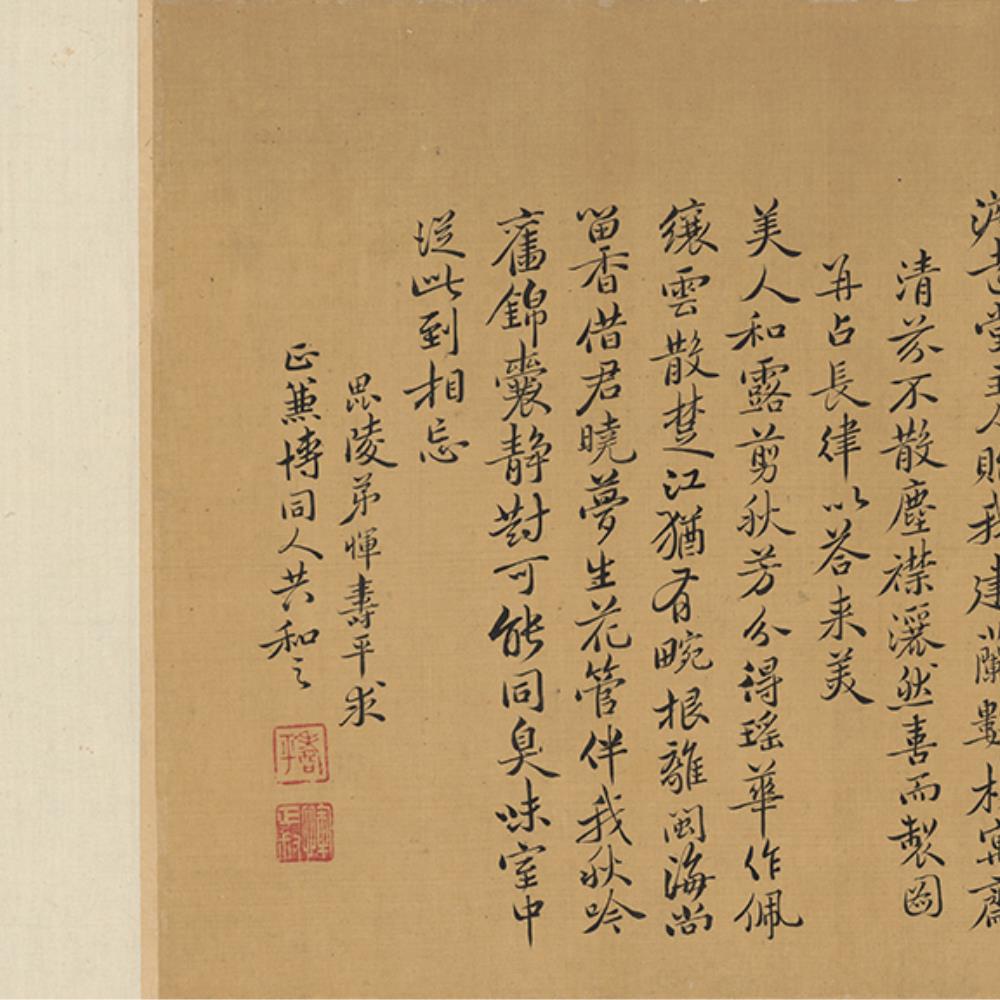 堂主人貽我建蘭數本寓齋
清芬不散塵襟灑然喜而製圖
再占長律以答来美
美人和露剪秋芳分得瑤華作佩
纕雲散楚江猶有畹根離閩海尚
留香借君曉夢生花管伴我秋吟
舊錦囊静對可能同臭味室中
從此到相忘
毘陵弟惲壽平求
正兼博同人共和之
壽平
惲正叔